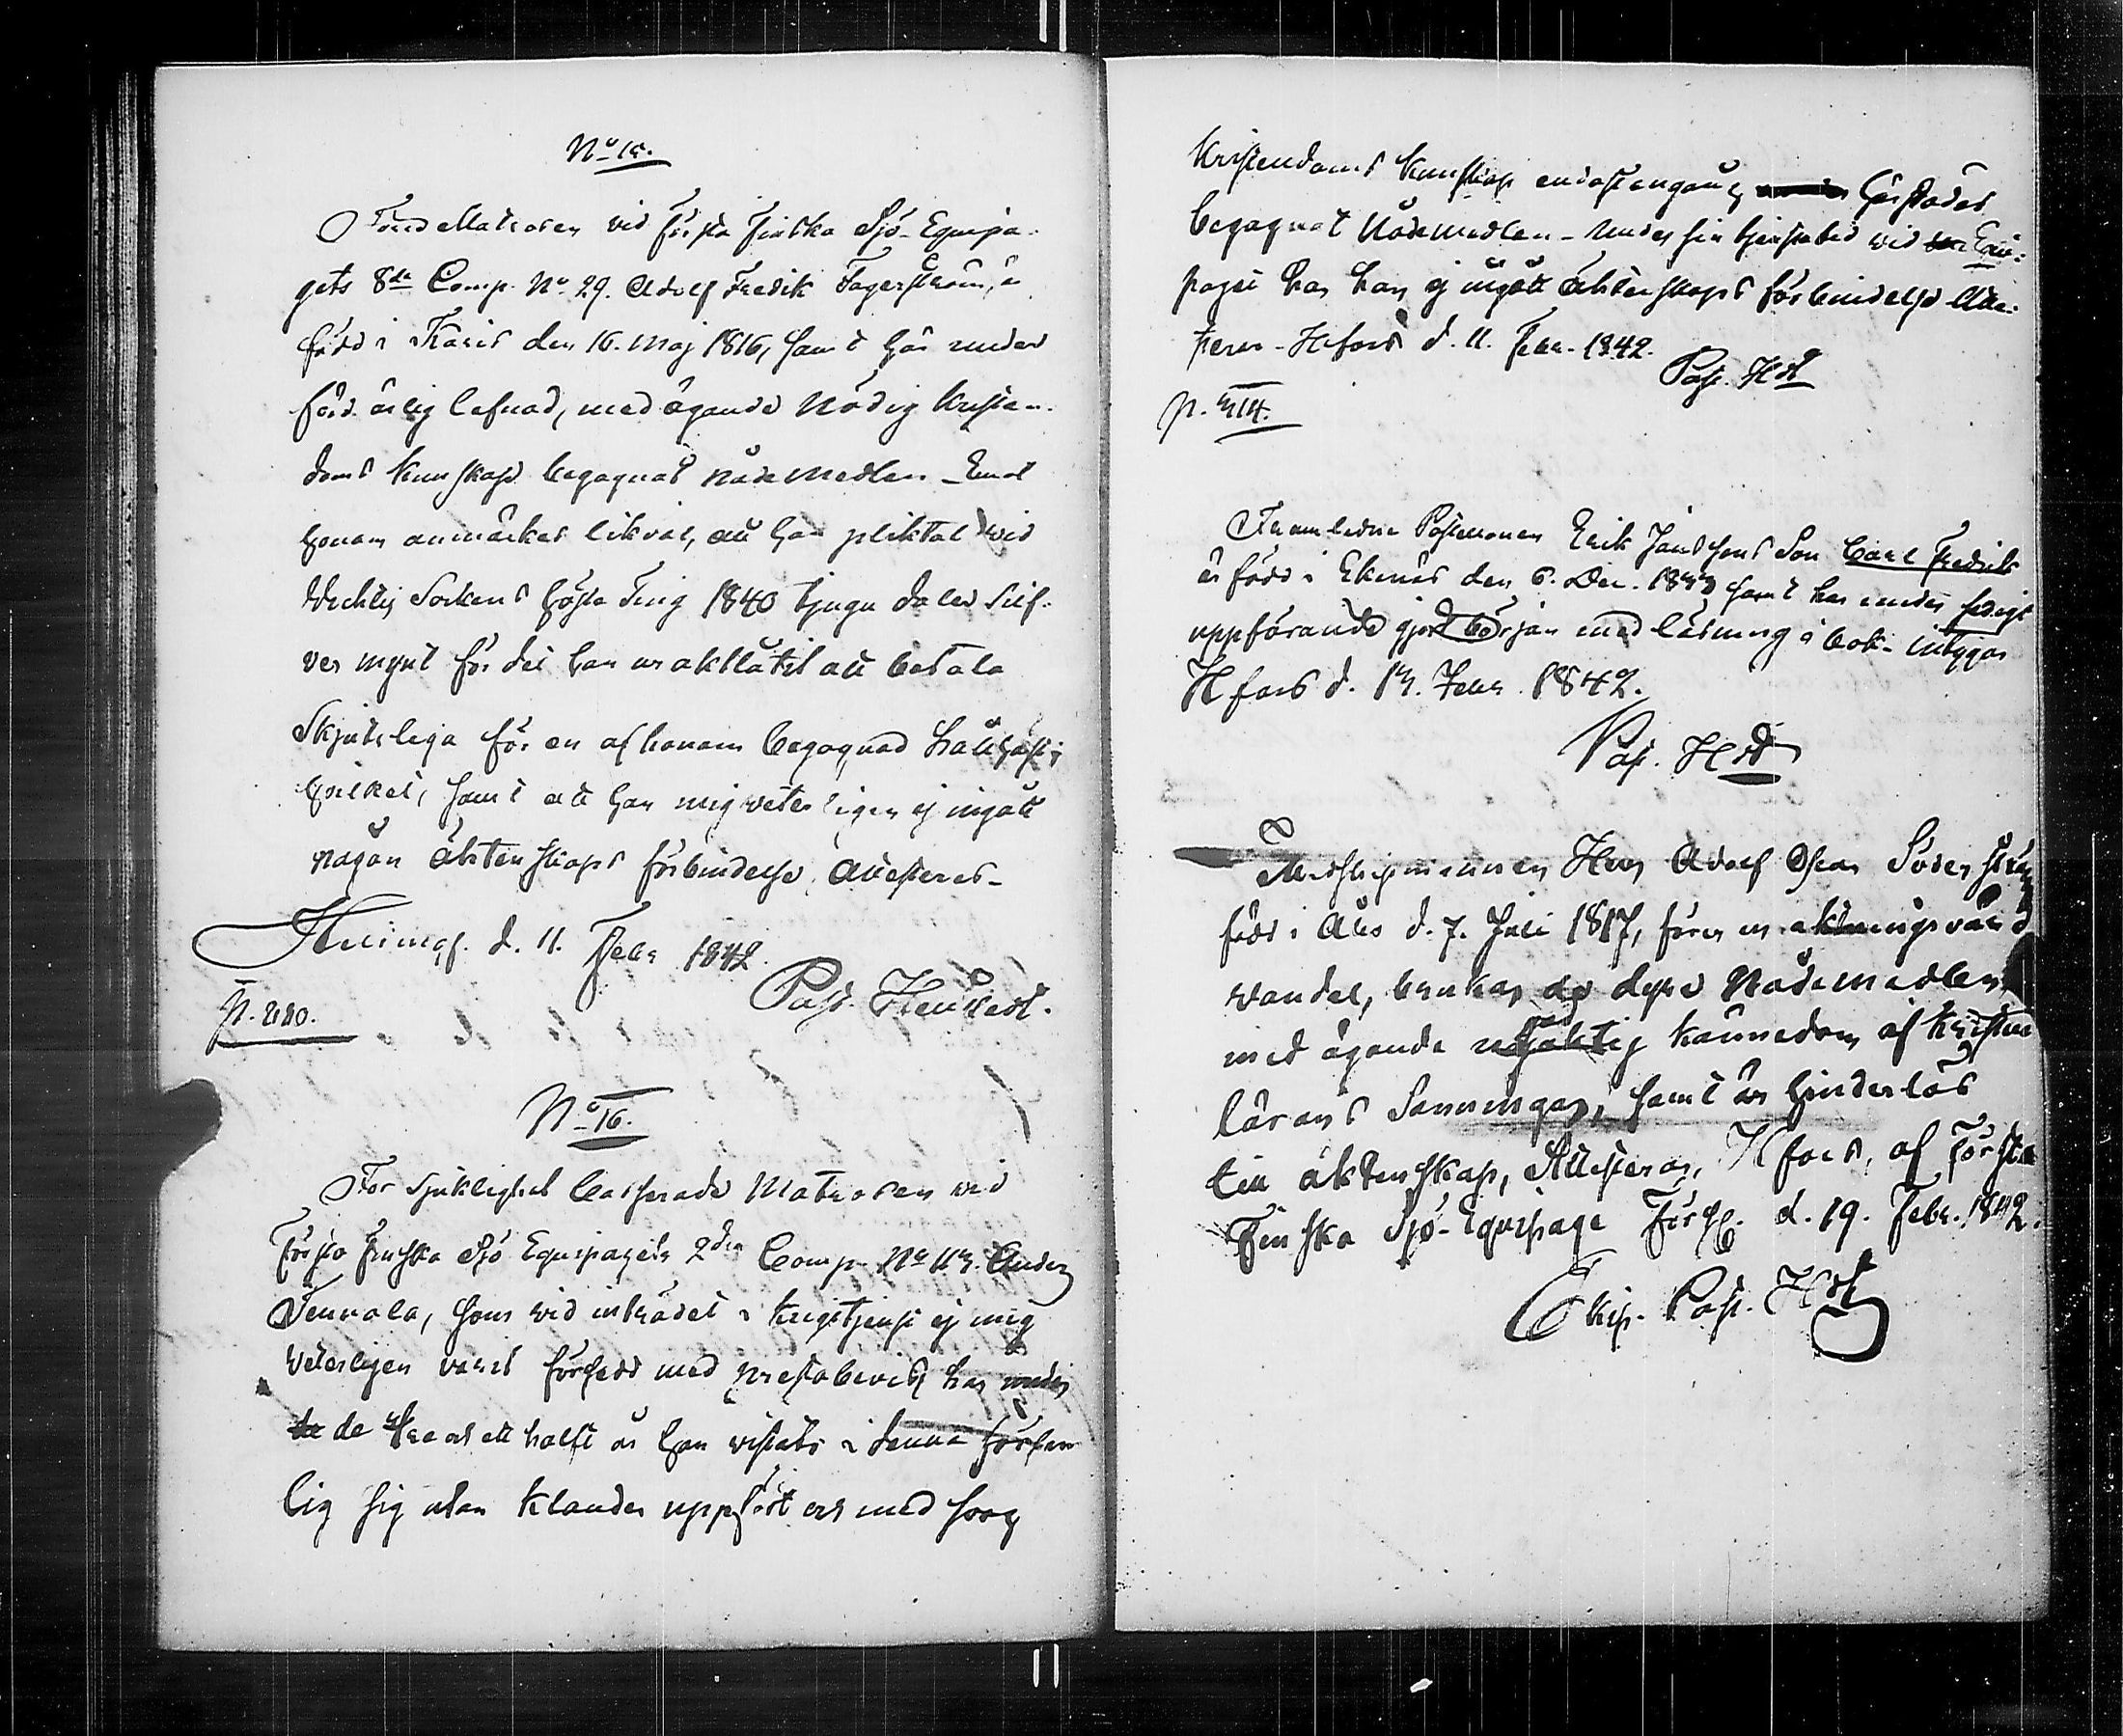 No 15.
Förre Matrosen vid första finska Sjö-Equipa-
gets 8de Comp. No 29. Adolf Fredik Fagerström, är
född i Karis den 16. Maj 1816, samt har under
förd ärlig lefnad, med ägande nödig kristen-
doms kunskap begagnat nådemedlen - Emot
honom anmärkes likväl, att han pliktat vid
Wichtis Sockens höste Ting 1840 tjugu daler Silf-
ver mynt för det han uraktlåtit att betala
Skjutslega för en af honom begagnad håll häst;
hvilket, samt att han mig veterligen ej ingått
någon äktenskaps förbindelse, attesteres -
Helsingf. d. 11. Febr 1842.
Past.
p. 280.
No 16.
För sjuklighet casserade Matrosen vid
första finska Sjö Equipagets 2dra Comp. No Anders
Tenvala, som vid inträdet i krigstjenst ej mig
veterligen varit försedd med prestabevis har under
de och ett halft år han vistats i denna försam
lig sig utan klander uppfört och med svag
kristendoms kunskap endast engång härstädes
begagnat Nådemedlen - Under sin tjenstetid vid Equi-
paget har han ej ingått äktenskaps förbindelse Atte-
steras - Hfors d. 11. Febr. 1842.
Past. Hdt
p. 314.
Framledne Erik Janssons Son Carl Fredrik
är född i Ekenäs den 6. Dec. samt har under sedligt
uppförande gjort början med läsning i bok - intygar
Hfors d. 13. Febr. 1842.
Past. Hdt
Midshipmannen Herr Adolf Oscar Söderström
född i Åbo d. 7. Juli 1817, förer en aktningsvärd
vandel, brukar de dyre Nådemedlen
med ägande god kännedom af Kristna
lärans Sanningar, samt är hinderlös
till äktenskap, Attesteras, Hfors, af Första
Finska Sjö-EquipageFörs. d. 19. Febr. 1842.
Past. Hdt